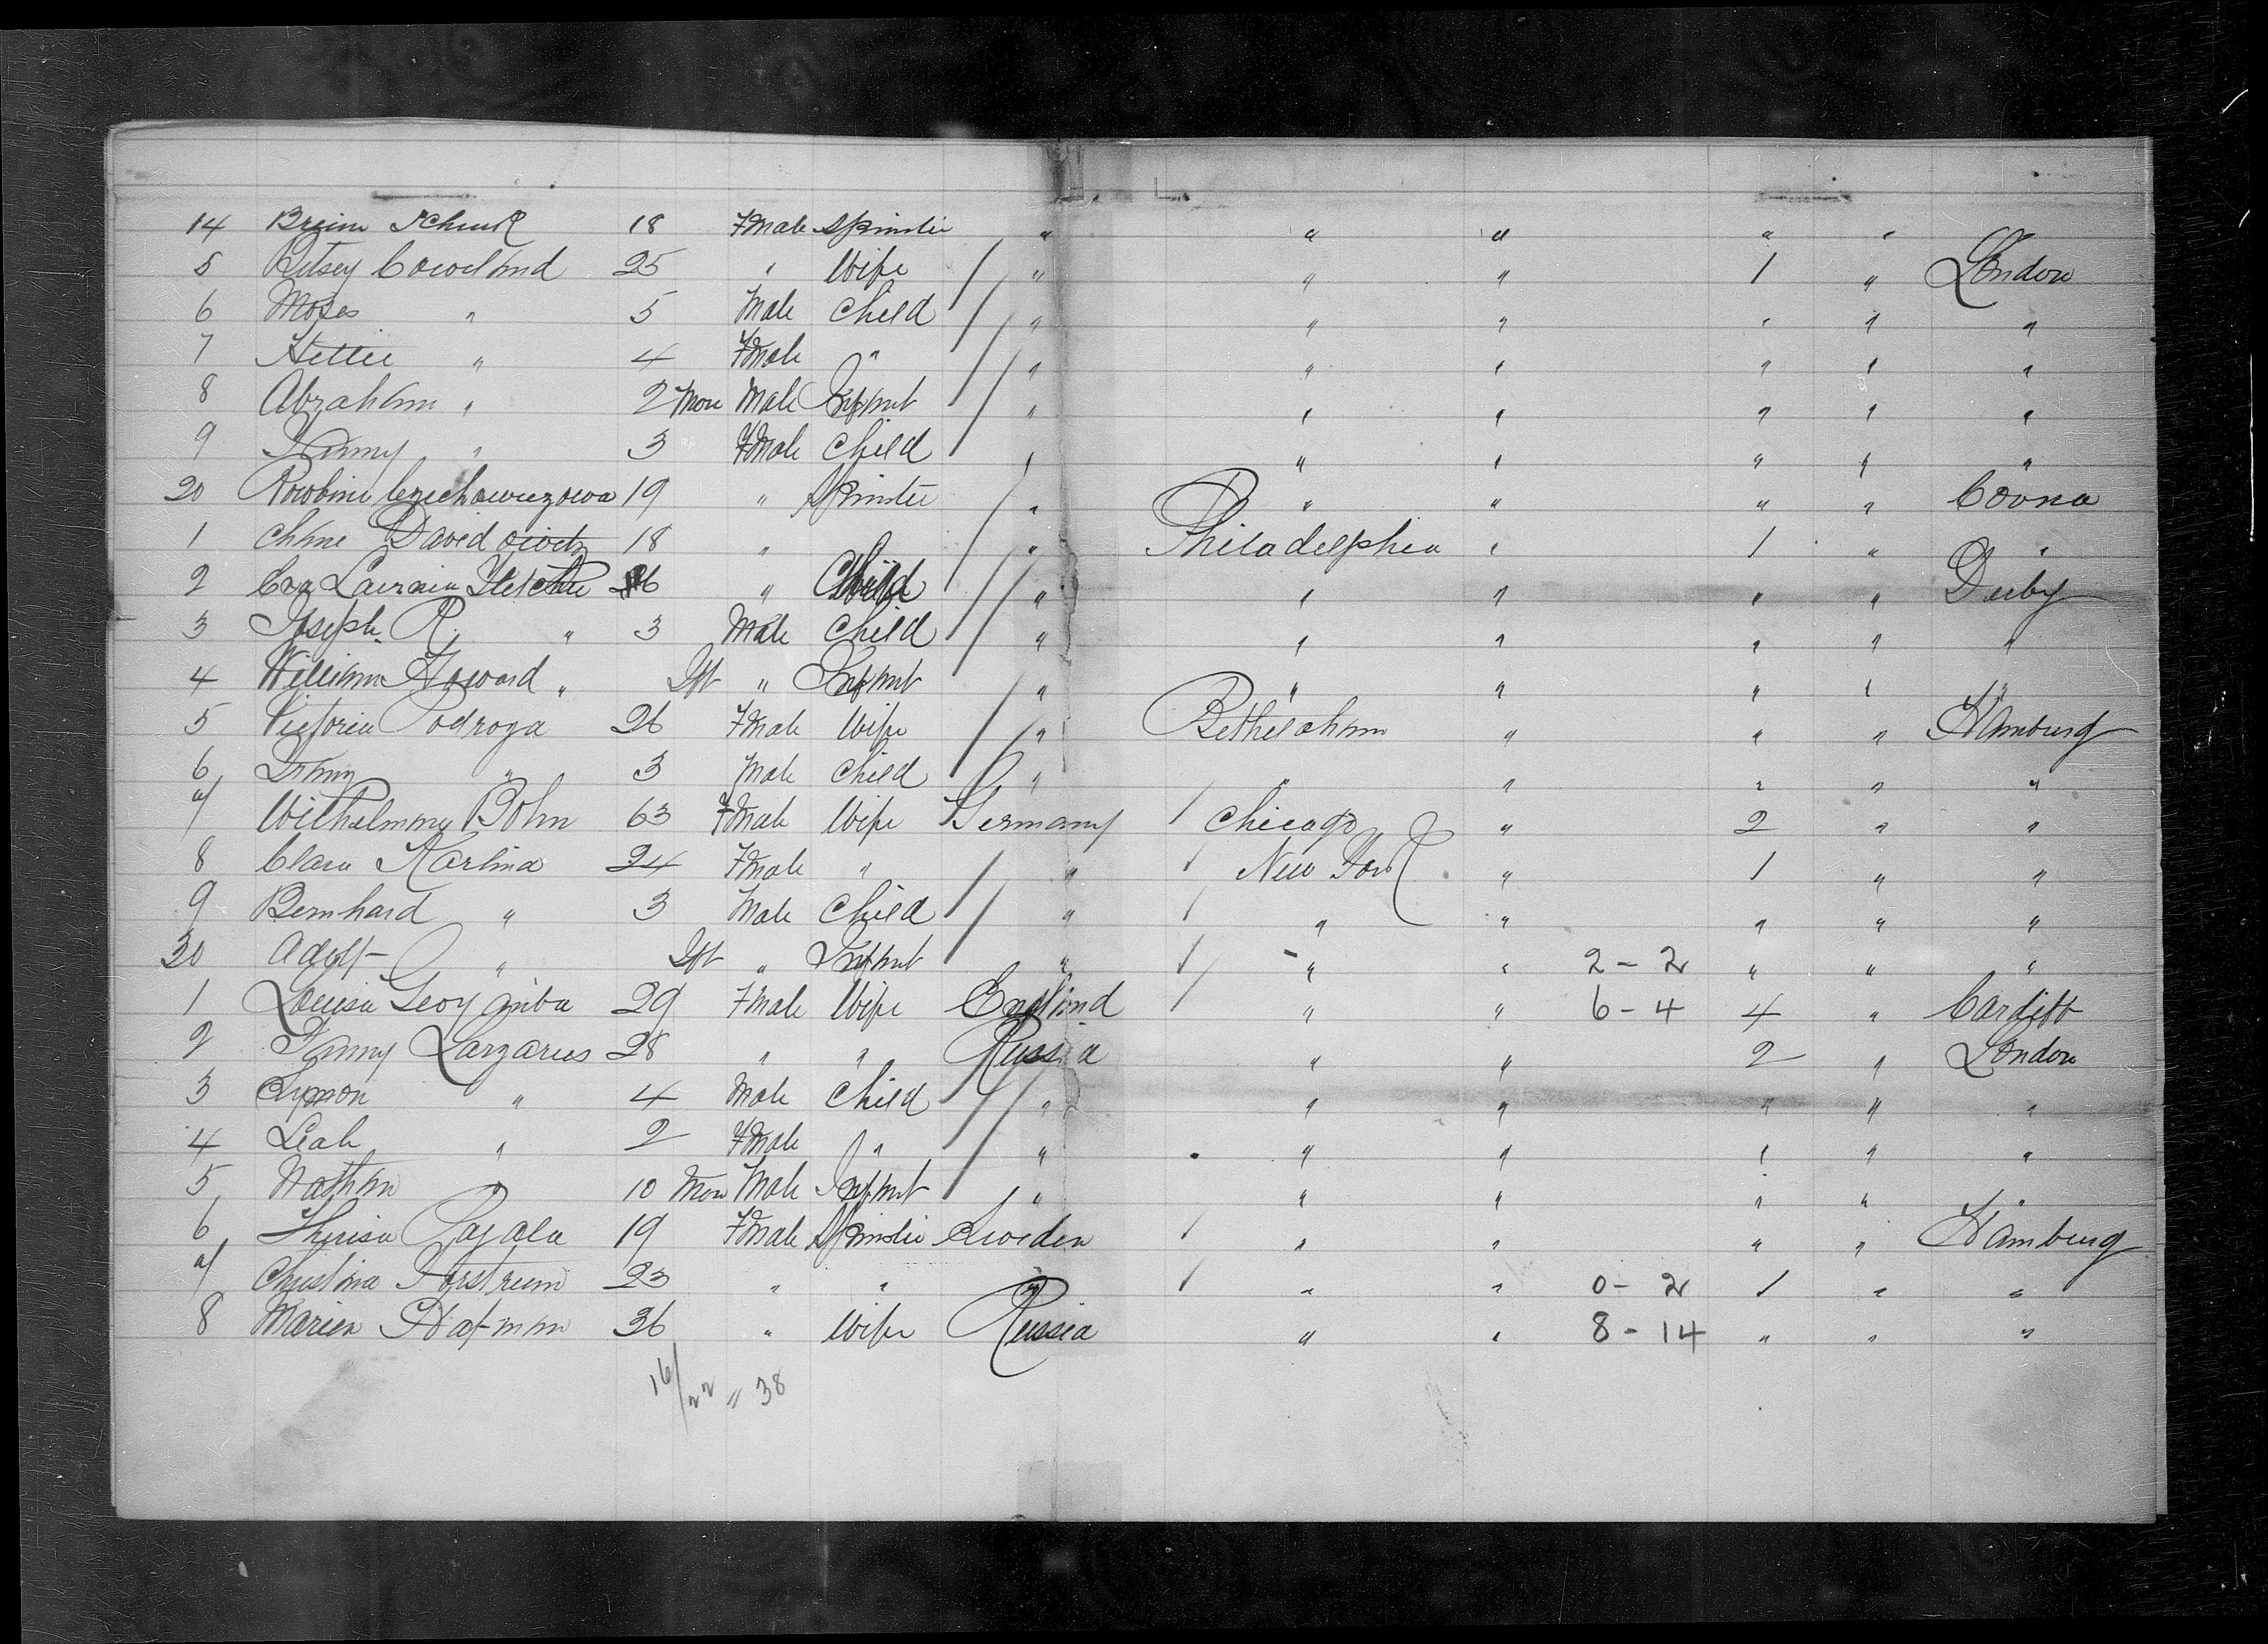 14 18 Fmale Spinster " " " " "
5 Betsey 25 " Wife " " " 1 " London
6 Moses " 5 Male Child " " " " " "
7 Hettie " 4 Fmale " " " " " " "
8 Abraham " 2 Mon Male Infant " " " " " "
9 Fanny " 3 Fmale Child " " " " " "
20 19 " Spinster " " " " " Covna
1 Davidowitz 18 " " " Philadelphia " 1 " "
2 Fletcher 26 " " " " " " Derby
3 Joseph R. " 3 Male Child " " " " " "
4 William Howard " Ift " Infant " " " " " "
5 Victoria Podroga 26 Fmale Wife " Bethelaham " " " Hamburg
6 " 3 Male Child " " " " " "
7 Wilhelmine Bohn 63 Fmale Wife Germany Chicago " 2 " "
8 Clara Karlina 24 Fmale " " New York " 1 " "
9 Bernhard " 3 Male Child " " " " " "
30 Adolf " Ift " Infant " " " 2 - 2 " " "
1 Louisa 29 Fmale Wife England " " 6 - 4 4 " Cardiff
2 Fanny Larzarus 28 " " Russia " " 2 " London
3 Symon " 4 Male Child " " " " " "
4 Leah " 2 Fmale " " " " " " "
5 Nathan " 10 Mon Male Infant " " " " " "
6 Theresa Pajala 19 Fmale Spinster Sweden " " " " Hamburg
7 Christina 23 " " " " " 0 - 2 1 " "
8 36 " Wife Russia " " 8 - 14 " " "
16/22 " 38